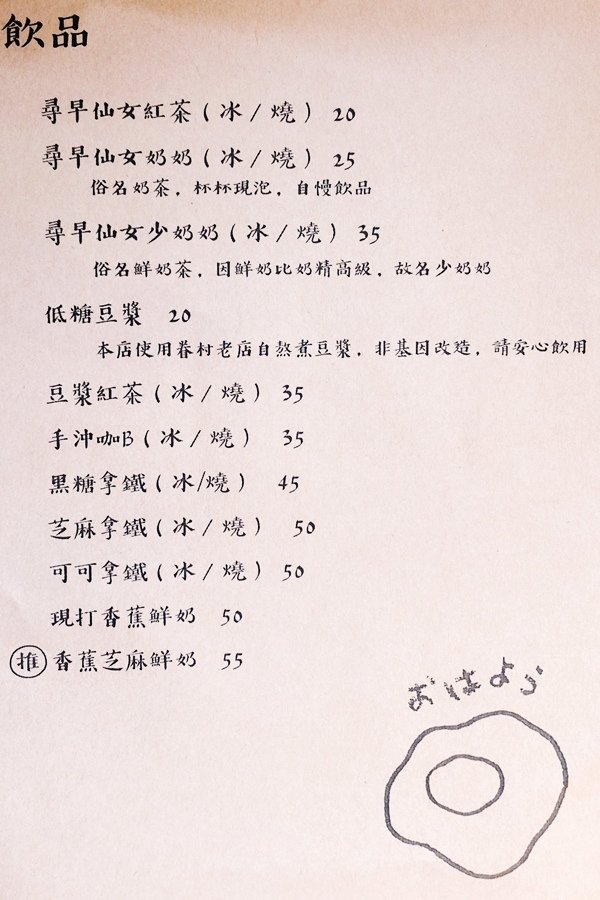 飲品
尋早仙女紅茶(冰/燒) 20
尋早仙女奶奶(冰/燒) 25
俗名奶茶，杯杯現泡，自慢飲品
尋早仙女少奶奶(冰/燒) 35
俗名鮮奶茶，因鮮奶比奶精高級，故名少奶奶
低糖豆漿 20
本店使用眷村老店自熬煮豆漿，非基因改造，請安心飲用
豆漿紅茶(冰/燒) 35
手沖咖B(冰/燒) 35
黑糖拿鐵(冰/燒) 45
芝麻拿鐵(冰/燒) 50
可可拿鐵(冰/燒) 50
現打香蕉鮮奶 50
推 香蕉芝麻鮮奶 55
おはよう